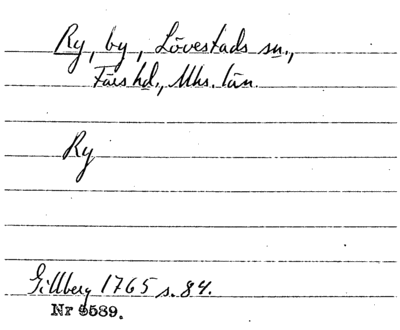 Ry, by, Lövestads sn.,
Färs hd., Mhs. län.
Ry
Gillberg 1765 s. 84.
Nr 9589.